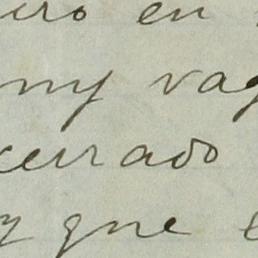 uro en
my vag
cerrado
y que e